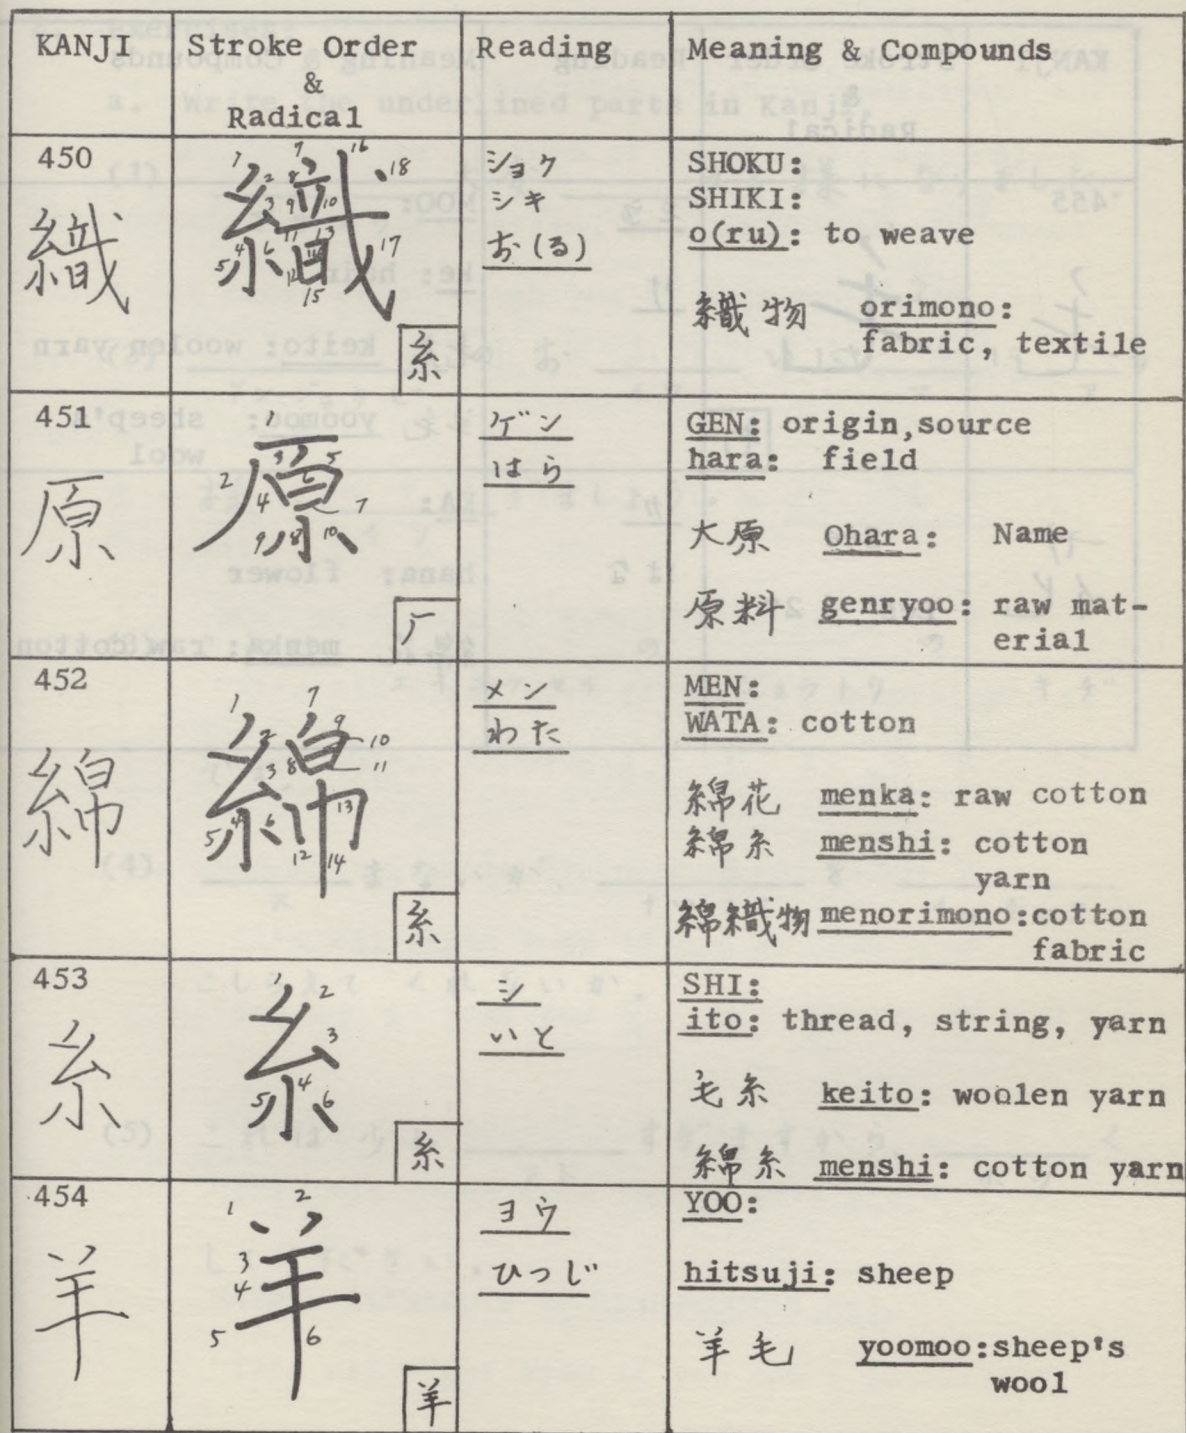 KANJI Stroke Order & Radical Reading Meaning & Compounds
450
織
織
糸
ショク
シキ
お(る)
SHOKU:
SHIKI:
o(ru): to weave
織物 orimono:
fabric, textile
451
原
原
厂
ゲン
はら
GEN: origin,source
hara: field
大原 Ohara: Name
原料 genryoo: raw mat-
erial
452
綿
綿
糸
メン
わた
MEN:
WATA: cotton
綿花 menka: raw cotton
綿糸 menshi: cotton
yarn
綿織物 menorimono:cotton
fabric
453
糸
糸
糸
シ
いと
SHI:
ito: thread, string, yarn
毛糸 keito: woolen yarn
綿糸 menshi: cotton yarn
454
羊
羊
羊
ヨウ
ひつじ
YOO:
hitsuji: sheep
羊毛 yoomoo:sheep's
wool